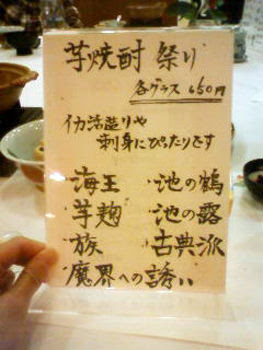 芋焼酎 祭り
各グラス 650円
イカ活造りや
刺身にぴったりです
海王 ・池の鶴
芋麹 ・池の露
族 ・古典派
魔界への誘い